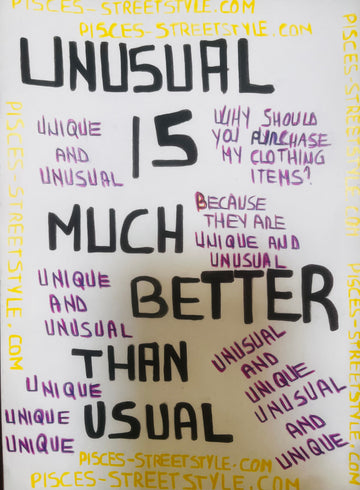 PISCES-STREETSTYLE.COM
PISCES-STREETSTYLE.COM
UNUSUAL
IS
UNIQUE
AND
UNUSUAL
WHY SHOULD
YOU PURCHASE
MY CLOTHING
ITEMS?
BECAUSE
THEY ARE
UNIQUE AND
UNUSUAL
MUCH
BETTER
UNIQUE
AND
UNUSUAL
THAN
USUAL
UNIQUE
UNIQUE
UNIQUE
UNUSUAL
AND
UNIQUE
UNUSUAL
AND
UNIQUE
PISCES-STREETSTYLE.COM
PISCES-STREETSTYLE.COM
PISCES-STREETSTYLE.COM
PISCES-STREETSTYLE.COM